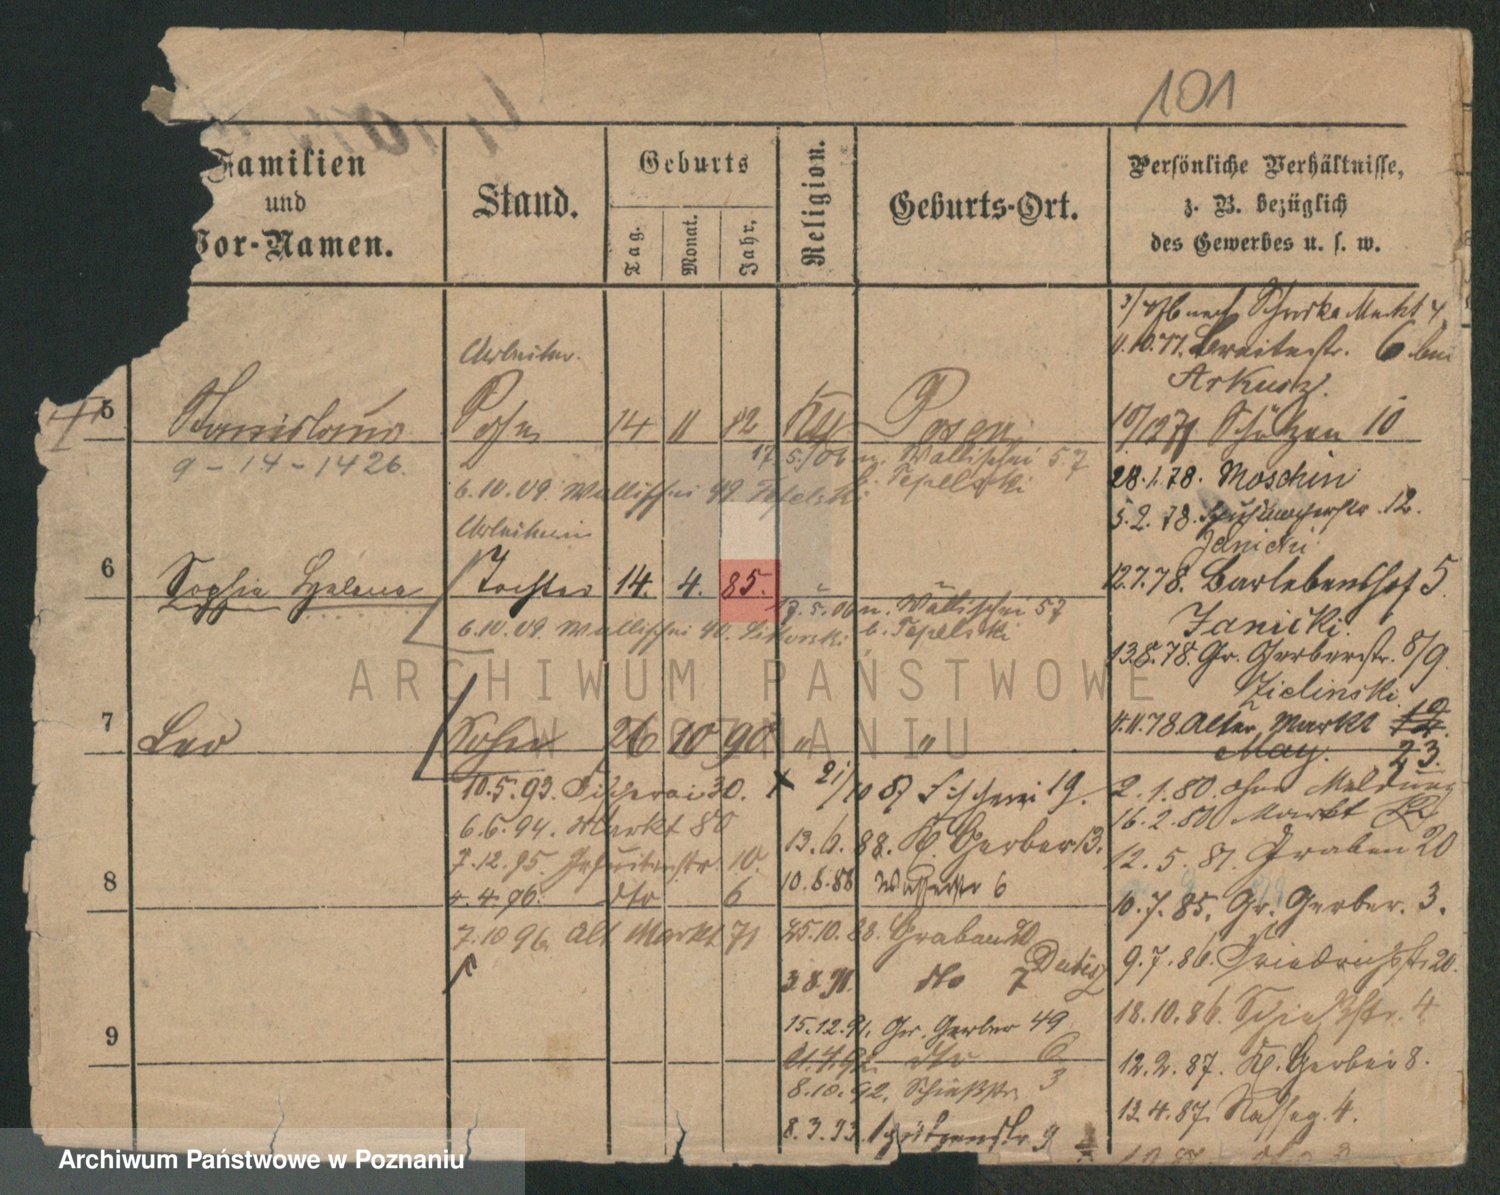 101
Familien
und
Vor-Namen.
Stand.
Geburts
Tag.
Monat.
Jahr,
Religion.
Geburts-Ort.
Persönliche Verhältnisse,
z. B. bezüglich
des Gewerbes u. s. w.
Markt 4
11.10.77. Breitestr. 6 bei
Arkusz.
Arbeiter.
5 Stanislaus Posen 14 11 82 Posen
10/12 77 Schützen 10
9-14-1426.
17.5./06 n. Wallischei 57
b. Tepelski
28.1.78. Moschin
6.10.09. Wallischei
5.2.78. 12.
Janicki
Arbeiterin
6 Sophia Helena Tochter 14. 4. 85.
12.7.78. Barlebenshof 5.
Janicki.
17.5.06 n. Wallischei 57
b. Tepelski
6.10.09. Wallischei 40. Sikorski
13.8.78. Gr. Gerberstr. 8/9
Zielinski
7 Leo Sohn 26 10 90 " "
4.11.78. Alter Markt 12.
May. 23.
10.5.93. Fischerei 30.
21/10 87 Fischerei 19.
2.1.80. ohne Meldung
6.6.94. Markt 80
13.6.88. Kl. Gerber 13.
16.2.80. Markt
7.12.95. Jesuitenstr. 10.
12.5.81. Graben 20
8
4.4.96. dto 6
10.6.88 Wasserstr 6
10.7.85. Gr. Gerber. 3.
7.10 96. Alt Markt 71
25.10.88. Graben 20
9.7.86. Friedrichstr. 20.
3.8.90. dto 7
15.12.91. Gr. Gerber 49
18.10.86. Schießstr. 4
9
21.4.92. dto 6
12.2.87. Kl. Gerber 8.
8.10.92. Schießstr. 3
13.4.87. 4.
8.3.93. Schützenstr. 9
ARCHIWUM PAŃSTWOWE
W POZNANIU
Archiwum Państwowe w Poznaniu